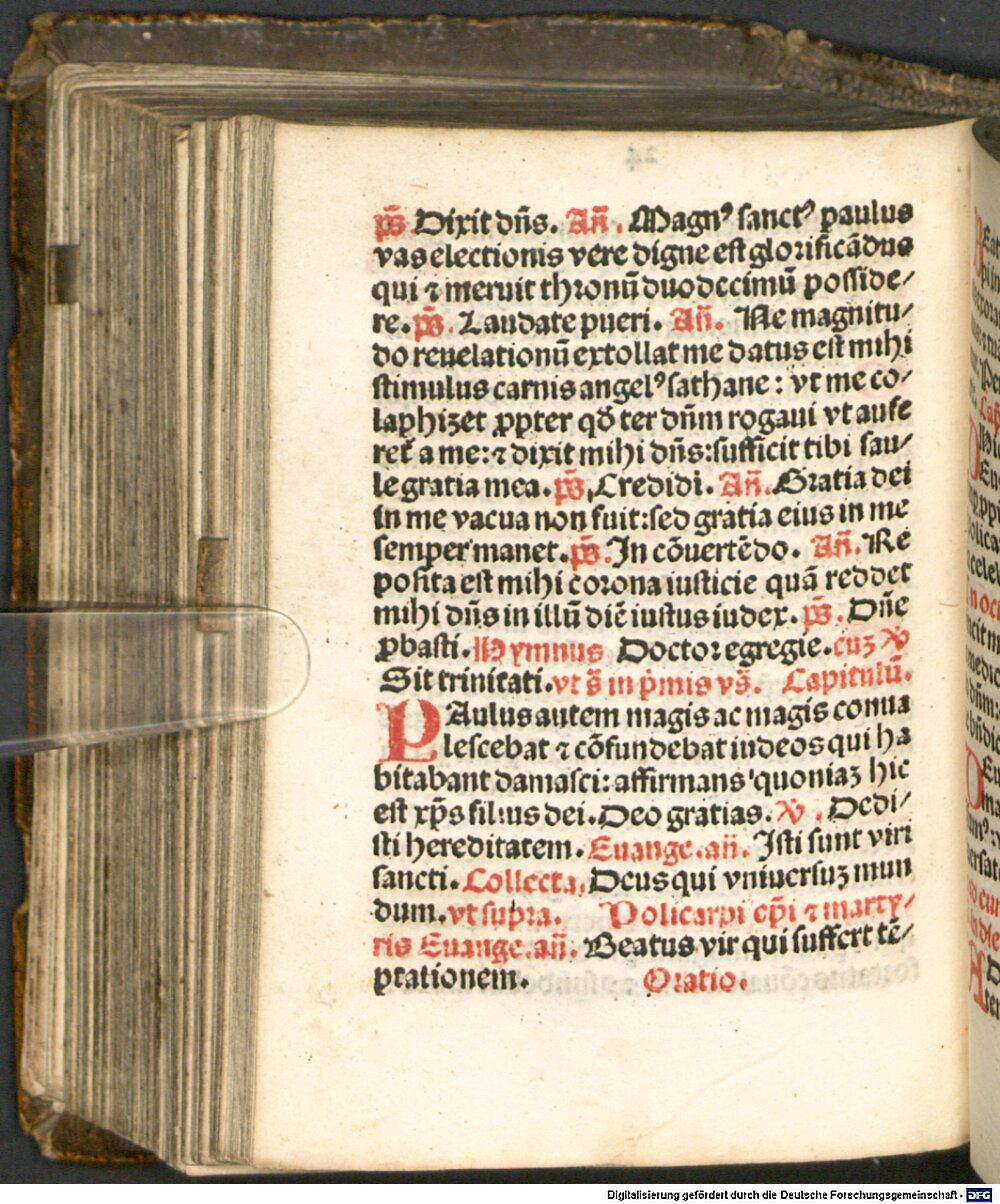 ps̄ Dixit dn̄s. An̄. Magnꝰ sanctꝰ paulus
vas electionis vere digne est glorificādus
qui ⁊ meruit thronū duodecimū posside/
re. ps̄. Laudate pueri. An̄. Ne magnitu/
do reuelationū extollat me datus est mihi
stimulus carnis angelꝰ sathane: vt me co/
laphizet ꝓpter qd̄ ter dn̄m rogaui vt aufe
ret̄ a me: ⁊ dixit mihi dn̄s: sufficit tibi sau/
le gratia mea. ps̄. Credidi. An̄. Gratia dei
in me vacua non fuit: sed gratia eius in me
semper manet. ps̄. In cōuertēdo. An̄. Re
posita est mihi corona iusticie quā reddet
mihi dn̄s in illū diē iustus iudex. ps̄. Dn̄e
ꝓbasti. Hymnus Doctor egregie. cuꝫ ꝟ
Sit trinitati. vt s̄ in p̄mis vs̄. Capitulū.
PAulus autem magis ac magis conua
lescebat ⁊ cōfundebat iudeos qui ha
bitabant damasci: affirmans quoniaꝫ hic
est xp̄s filius dei. Deo gratias. ꝟ. Dedi/
sti hereditatem. Euange. an̄. Isti sunt viri
sancti. Collecta. Deus qui vniuersuꝫ mun
dum. vt supra. Policarpi ep̄i ⁊ marty/
ris Euange. an̄. Beatus vir qui suffert tē/
ptationem. Oratio.
Digitalisierung gefördert durch die Deutsche Forschungsgemeinschaft - DFG